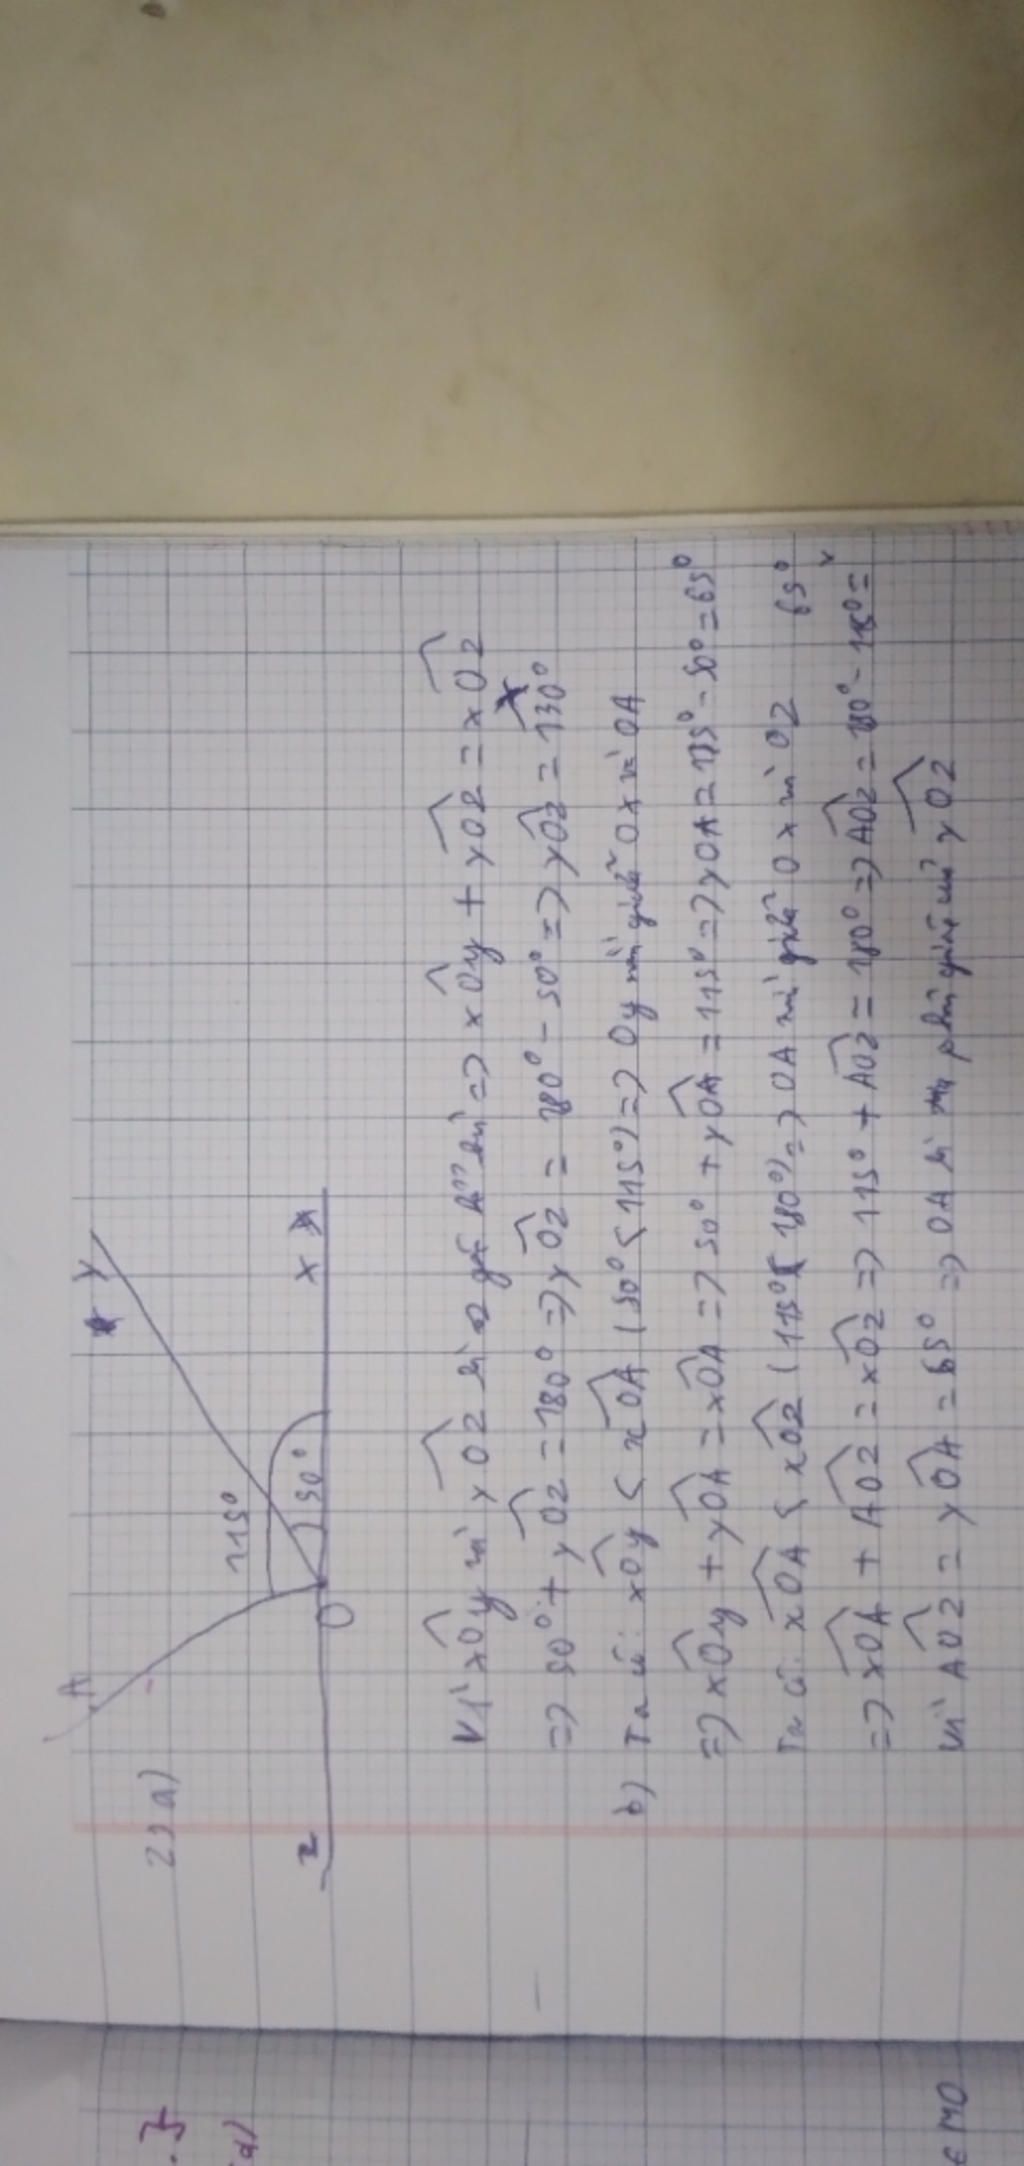 2) a)
A
y
115°
50°
z
O
x
Vì xOy và yOz là 2 góc kề bù => xOy + yOz = xOz
=> 50° + yOz = 180° => yOz = 180° - 50° => yOz = 130°
b) Ta có: xOy < xOA (50° < 115°) => Oy nằm giữa Ox và OA
=> xOy + yOA = xOA => 50° + yOA = 115° => yOA = 115° - 50° = 65°
Ta có: xOA < xOz (115° < 180°) => OA nằm giữa Ox và Oz
=> xOA + AOz = xOz => 115° + AOz = 180° => AOz = 180° - 115° = 65°
Vì AOz = yOA = 65° => OA là phân giác của yOz
a)